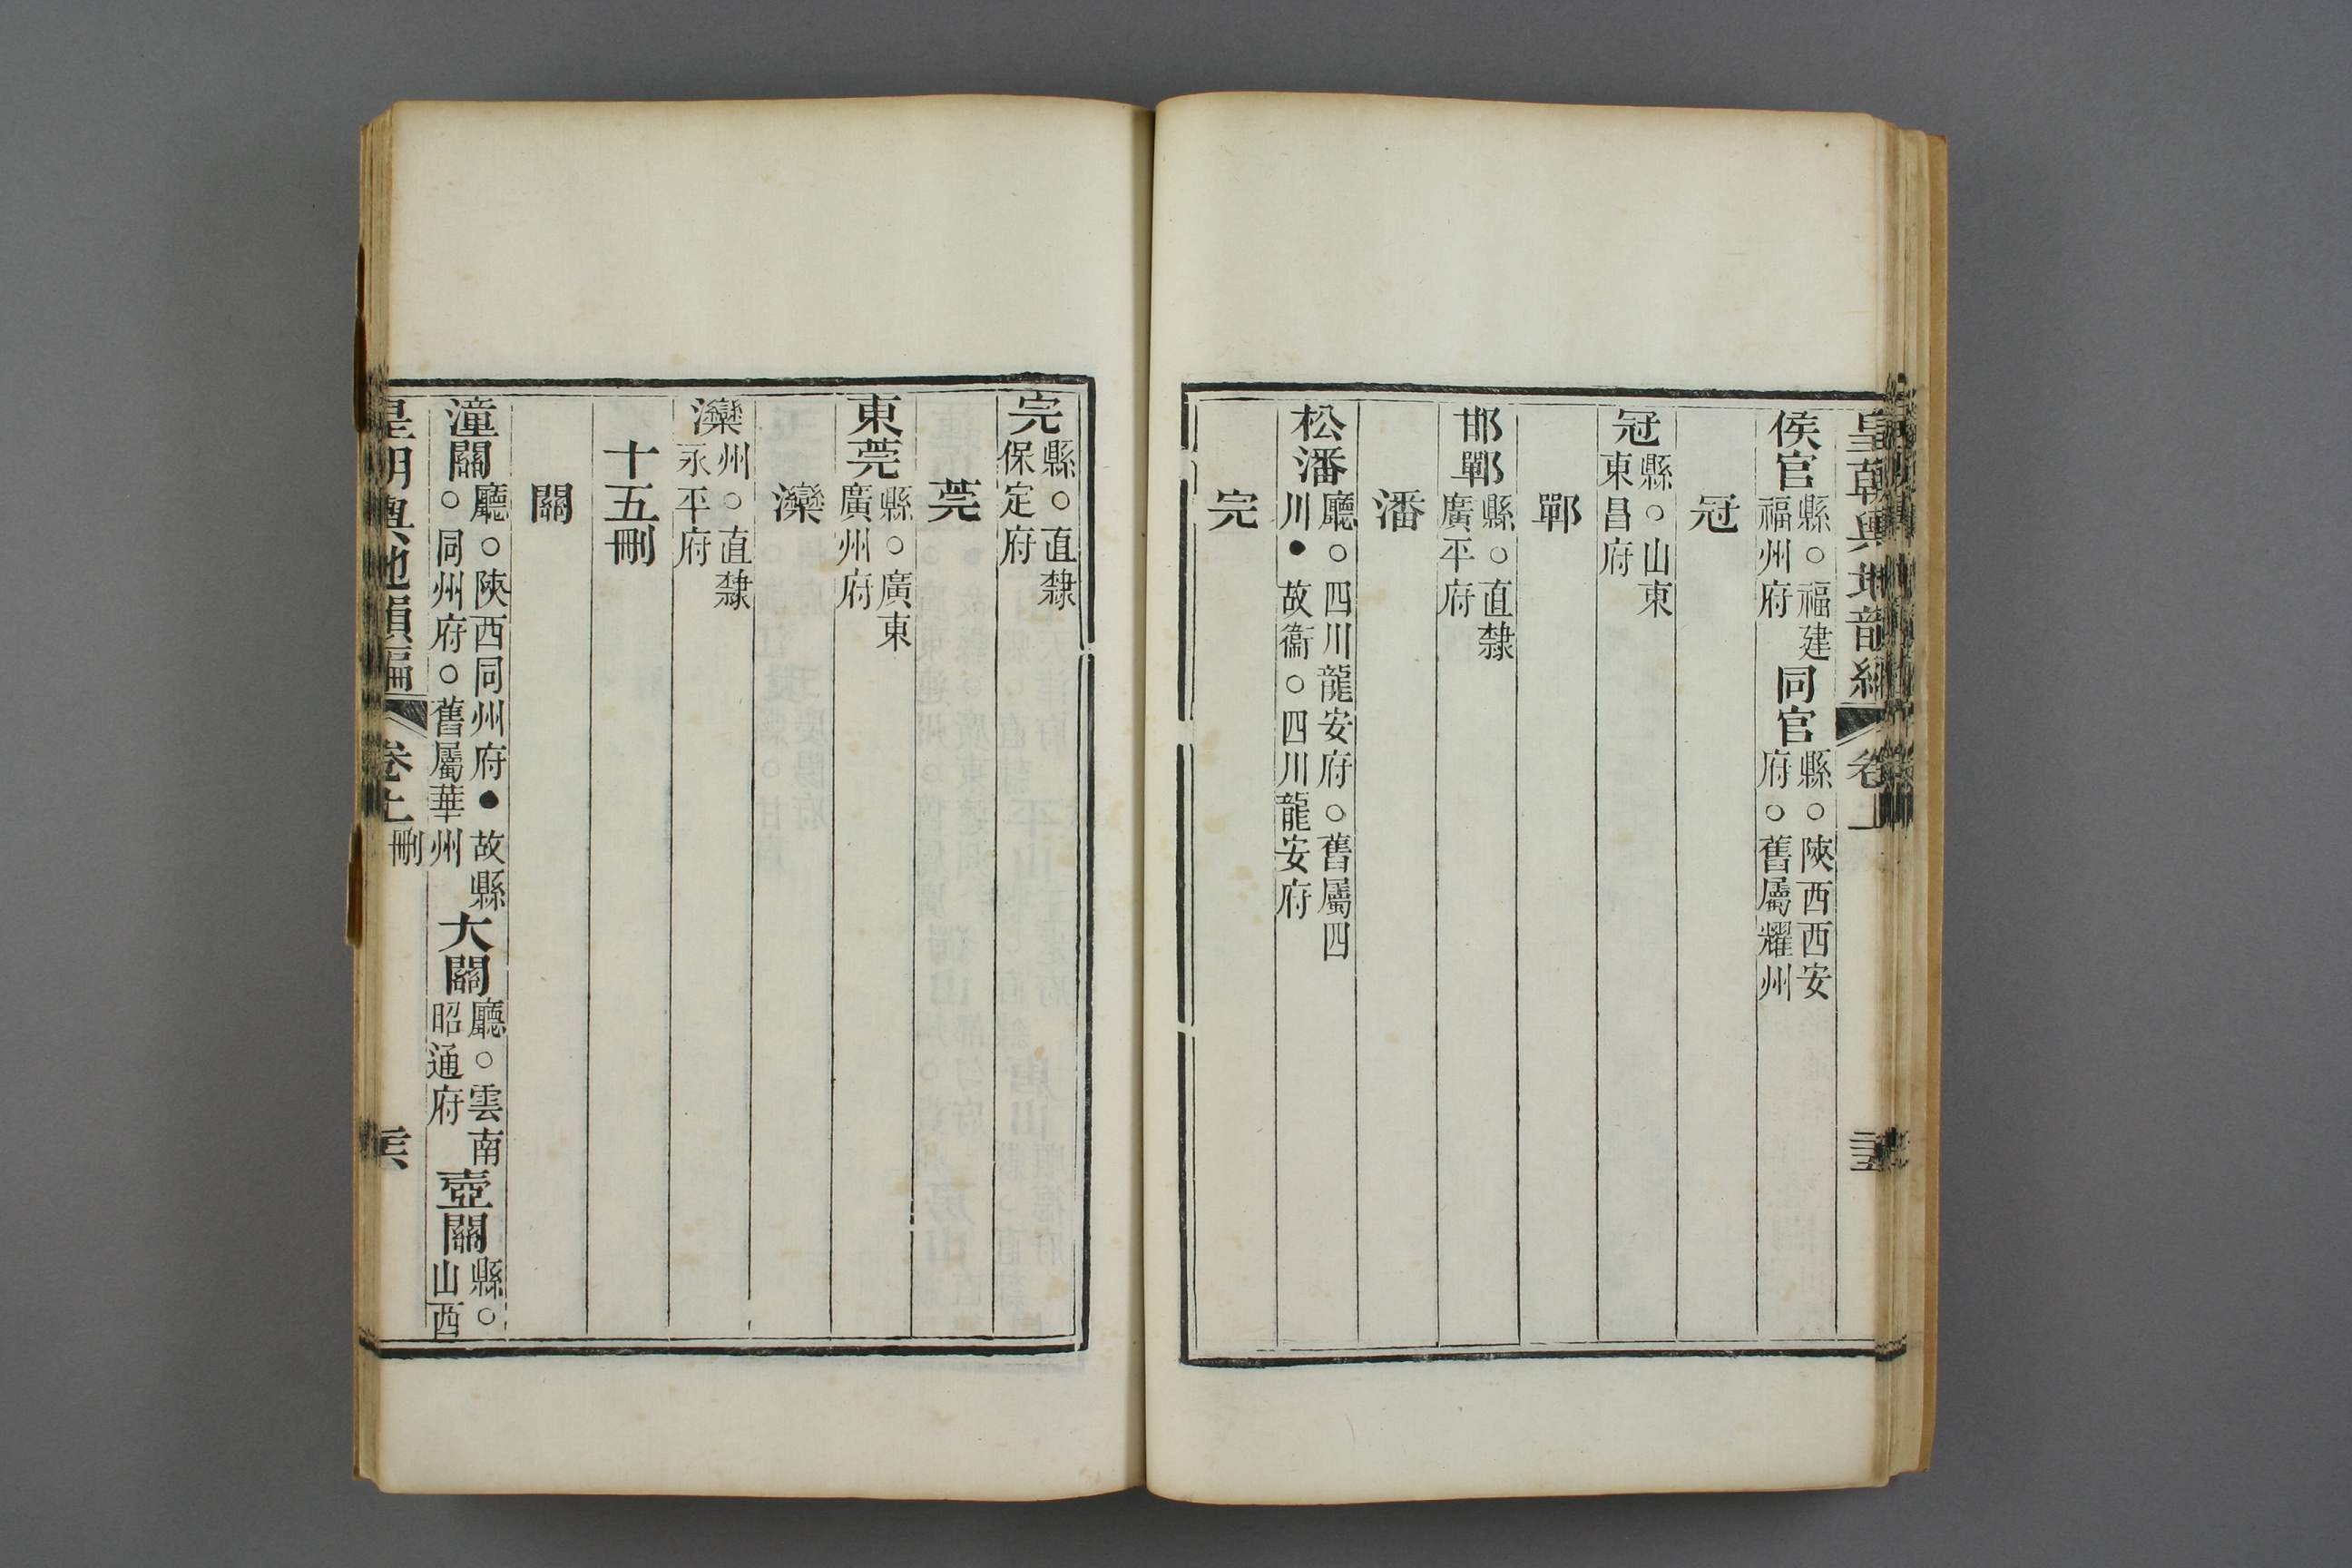 皇朝輿地韻編 卷上
侯官縣○福建福州府 同官縣○陝西西安府○舊屬耀州
冠
冠縣○山東東昌府
鄲
邯鄲縣○直隸廣平府
潘
松潘廳○四川龍安府○舊屬四川●故衞○四川龍安府
完
完縣○直隸保定府
莞
東莞縣○廣東廣州府
灤
灤州○直隸永平府
十五刪
關
潼關廳○陝西同州府●故縣○同州府○舊屬華州 大關廳○雲南昭通府 壺關縣○山西
皇朝輿地韻編 卷上 刪